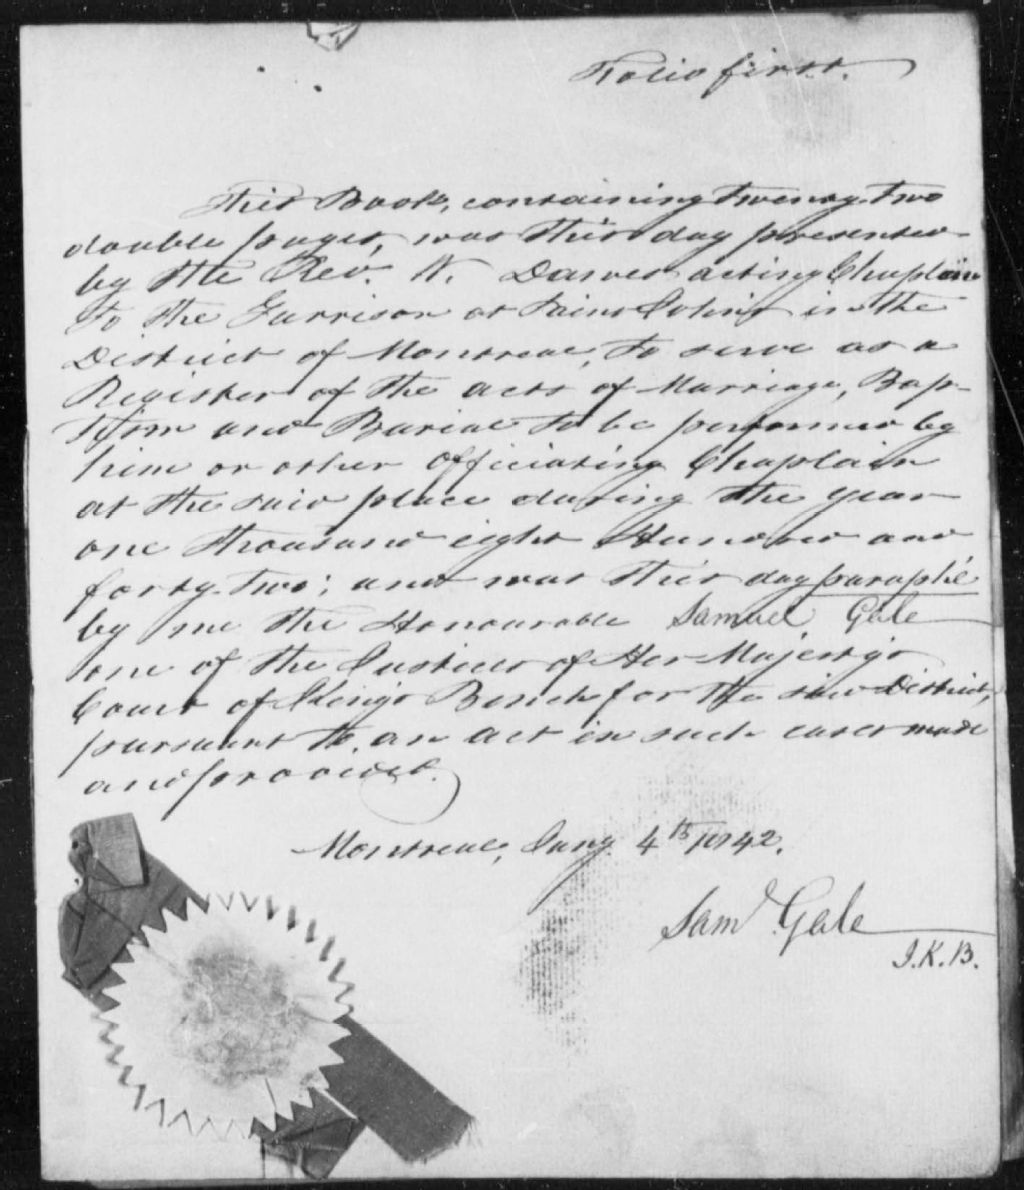 Folio first.
This Book, containing twenty-two
double pages, was this day presented
by the Revd. W. Dawes acting Chaplain
to the Garrison at Saint Johns in the
District of Montreal, to serve as a
Register of the acts of Marriage, Bap-
tism and Burial to be performed by
him or other Officiating Chaplain
at the said place during the year
one thousand eight Hundred and
forty-two; and was this day paraphé
by me the Honourable Samuel Gale
one of the Justices of Her Majesty's
Court of King's Bench for the said District,
pursuant to an act in such cases made
and provided.
Montreal, Jany. 4th 1842.
Saml. Gale
J.K.B.